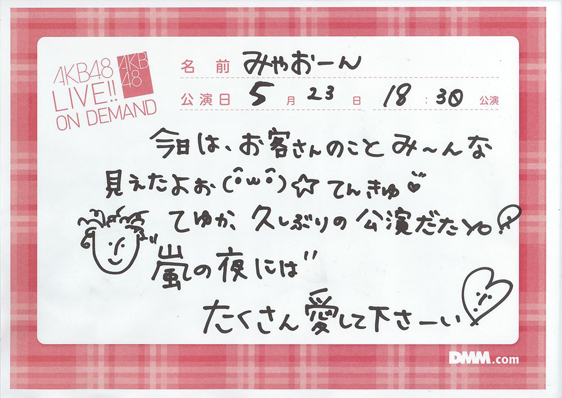 AKB48
LIVE!!
ON DEMAND
AKB
48
名前 みゃおーん
公演日 5月23日 18:30公演
今日は、お客さんのこと み〜んな
見えたよぉ(ôωô)☆ てんきゅ
てゆか、久しぶりの公演だたyo!
"嵐の夜には"
たくさん愛して下さーい
DMM.com